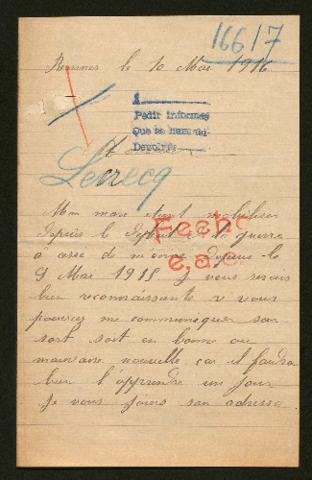 16617
Rennes le 10 Mai 1916
Pedir informes
Que se han
Devolver
Lerecq
Mon mari étant mobiliser
depuis le début de la guerre
a
depuis le
9 Mai 1915 Je vous serais
bien reconnaissante si vous
pouvez me communiquer son
sort soit en bonne ou
mauvaise nouvelle car il faudra
bien l'apprendre un jour
Je vous joins son adresse
Fecho
e.a.c.